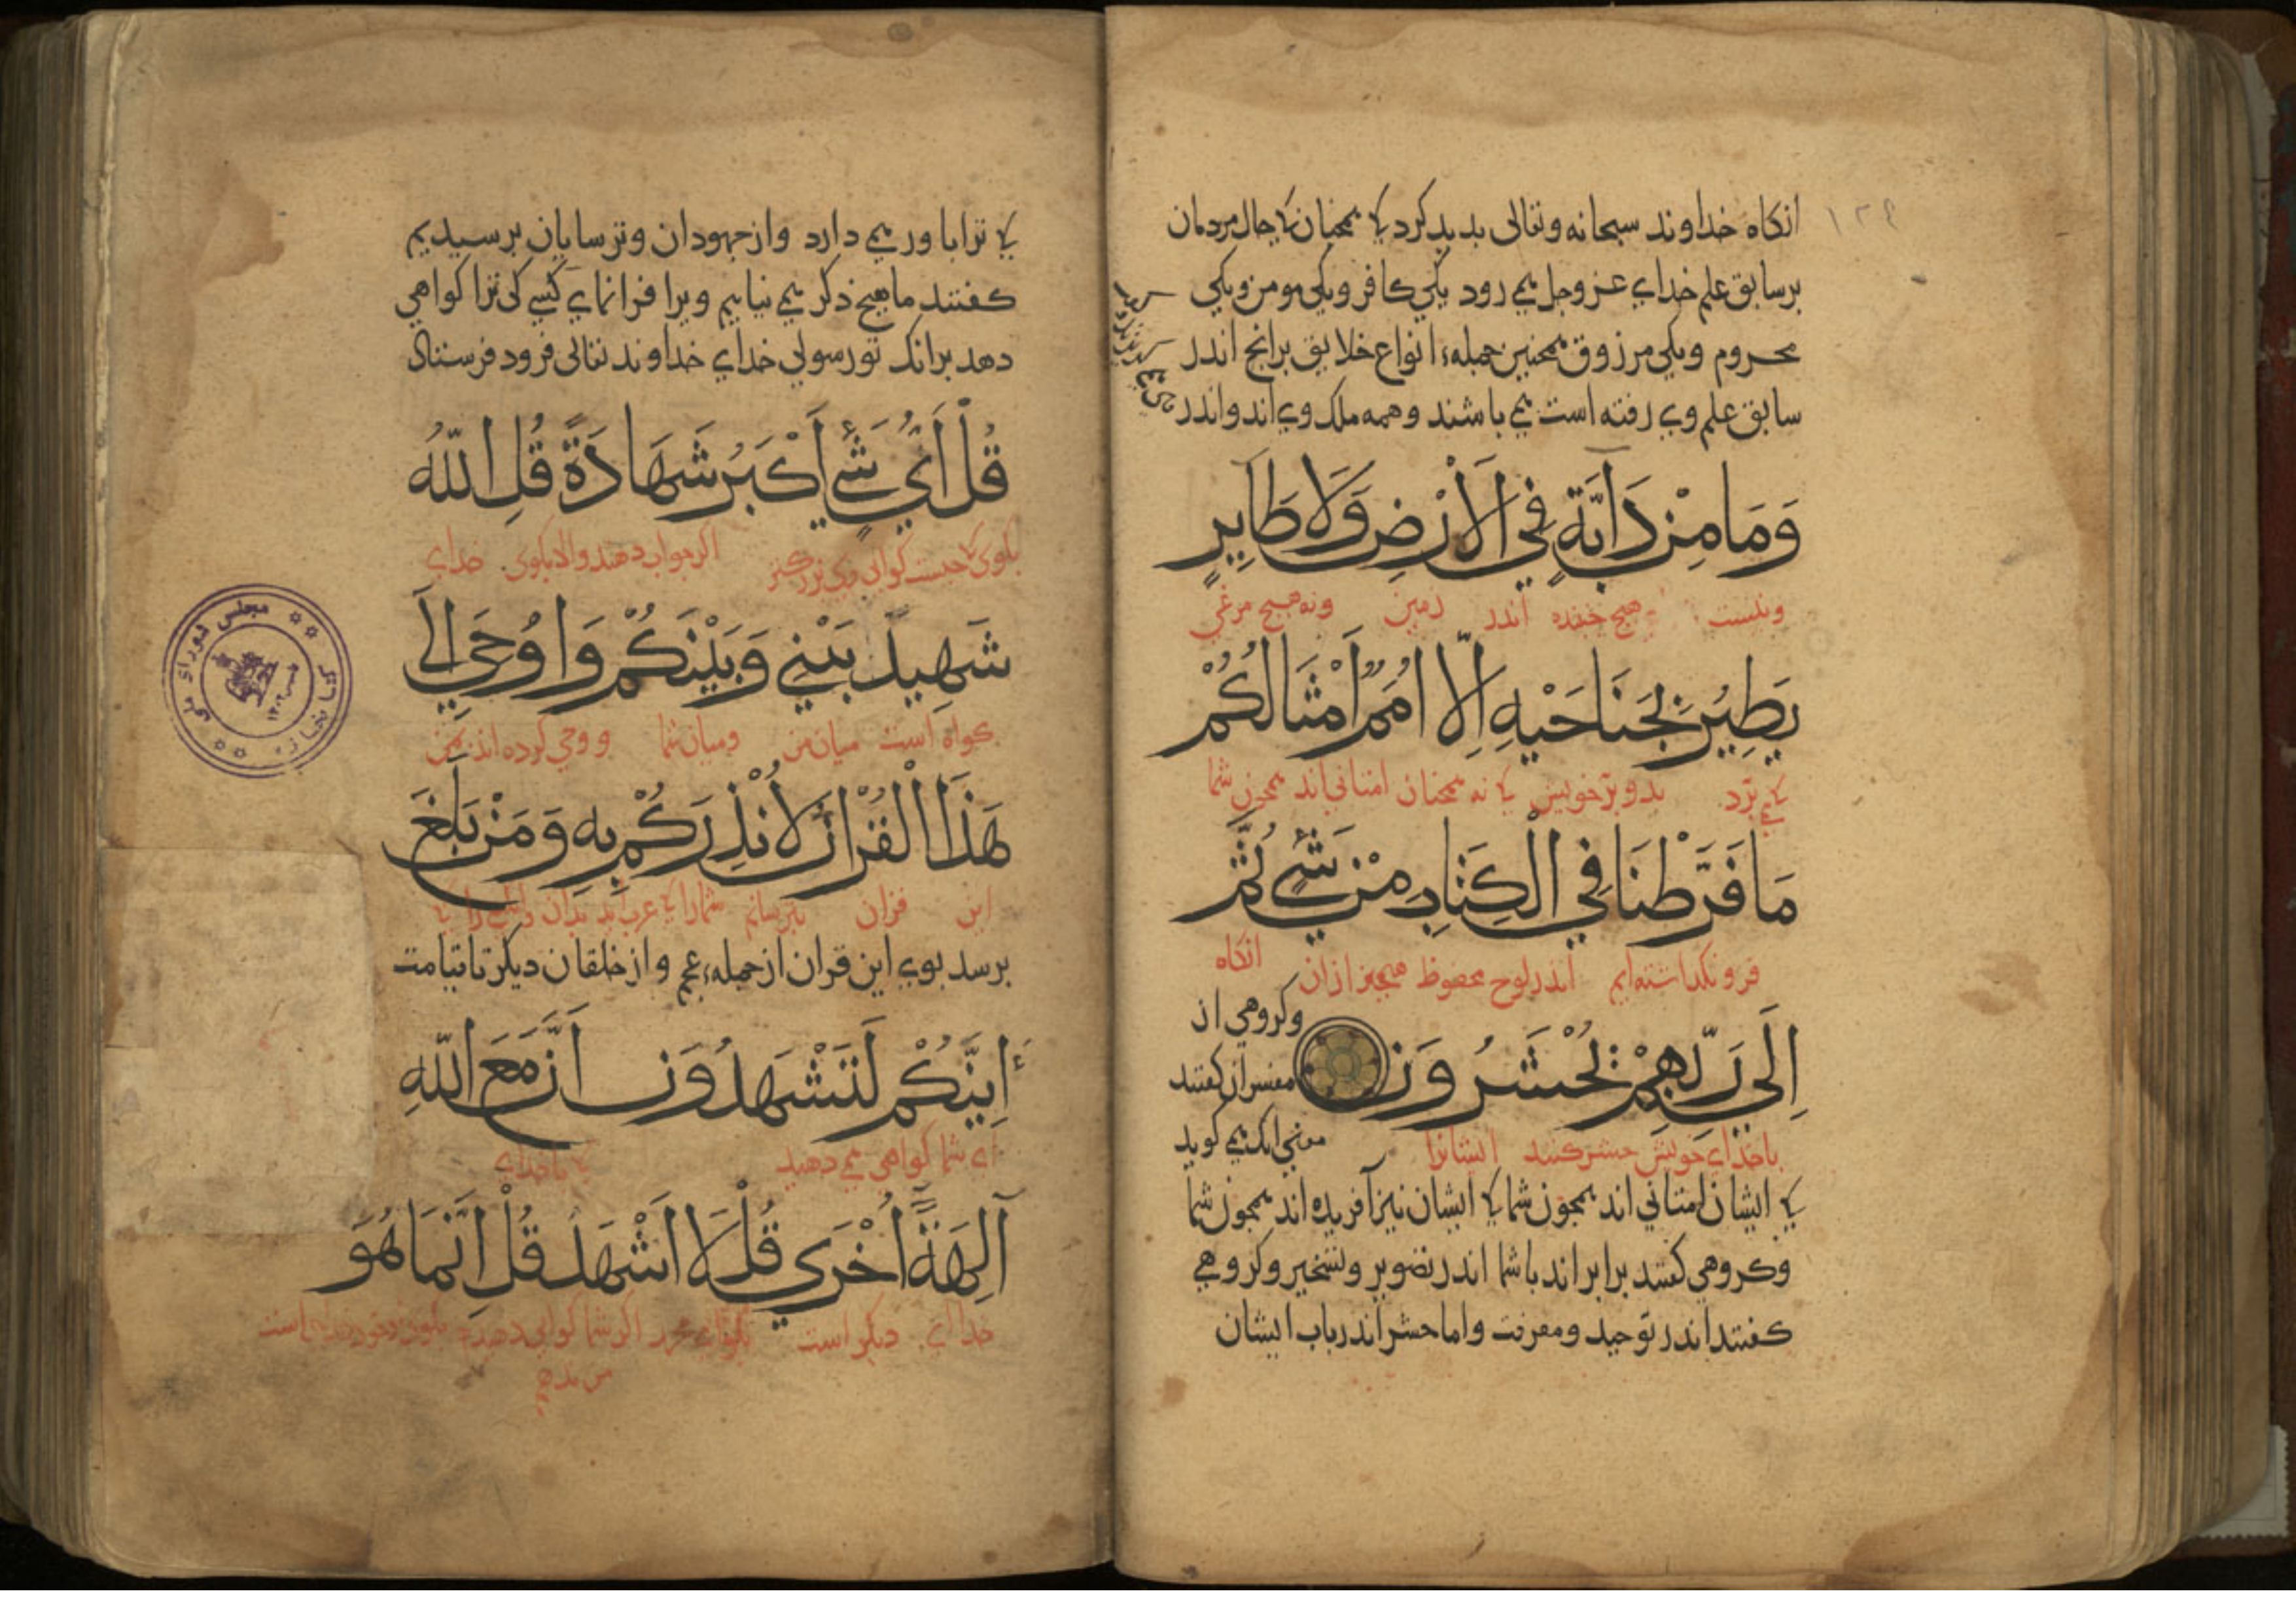 ۱۲۹
انکاه خداوند سبحانه وتعالی بدید کرد کا همچنان کا حال مردمان
برسابق علم خدای عزوجل می رود یکی کافر ویکی مومن ویکی
محروم ویکی مرزوق همچنین جمله انواع خلایق برانج اندر
سابق علم وی رفته است می باشند وهمه ملک وی اند واندر
وَمَا مِنْ دَابَّةٍ فِي الْاَرْضِ وَلَا طَايِرٍ
ونیست هیچ جنبنده اندر زمین ونه هیچ مرغی
يَطِيْرُ بِجَنَاحَيْهِ اِلَّا اُمَمٌ اَمْثَالُكُمْ
کا می پرد بدو پر خویش کا نه همچنان امتانی اند همچون شما
مَا فَرَّطْنَا فِي الْكِتَابِ مِنْ شَيْءٍ ثُمَّ
فرو نکداشته ایم اندر لوح محفوظ هیچیز ازان انکاه
اِلَى رَبِّهِمْ يُحْشَرُوْنَ
وکروهی از
مفسران کفتند
معنی انک می کوید
با خدای خویش حشر کنند ایشانرا
کا ایشان امتانی اند همچون شما کا ایشان نیز آفریده اند همچون شما
وکروهی کفتند برابر اند با شما اندر تصویر وتسخیر وکروهی
کفتند اندر توحید ومعرفت واما حشر اندر باب ایشان
کا ترا باور می دارد واز جهودان وترسایان برسیدیم
کفتند ما هیچ ذکر می نیابیم ویرا فرا نمای کسی کی ترا کواهی
دهد برانک تو رسولی خدای خداوند تعالی فرود فرستاد
قُلْ اَيُّ شَيْءٍ اَكْبَرُ شَهَادَةً قُلِ اللّٰهُ
بکوی کا چیست کواهی وی بزرکتر اکر جواب دهند والا بکوی خدای
شَهِيدٌ بَيْنِي وَبَيْنَكُمْ وَاُوحِيَ اِلَيَّ
کواه است میان من ومیان شما و وحی کرده اند بمن
هَذَا الْقُرْاٰنُ لِاُنْذِرَكُمْ بِهِ وَمَنْ بَلَغَ
این قران بترسانم شمارا کا عرب اید بدان
برسد بوی این قران از جمله عجم و از خلقان دیکر تا قیامت
اَيِنَّكُمْ لَتَشْهَدُوْنَ اَنَّ مَعَ اللّٰهِ
ای شما کواهی می دهید کا با خدای
آلِهَةً اُخْرَى قُلْ لَا اَشْهَدُ قُلْ اِنَّمَا هُوَ
خدای دیکر است محمد اکر شما کواهی دهید
من ندهم
کتابخانه مجلس شورای ملی